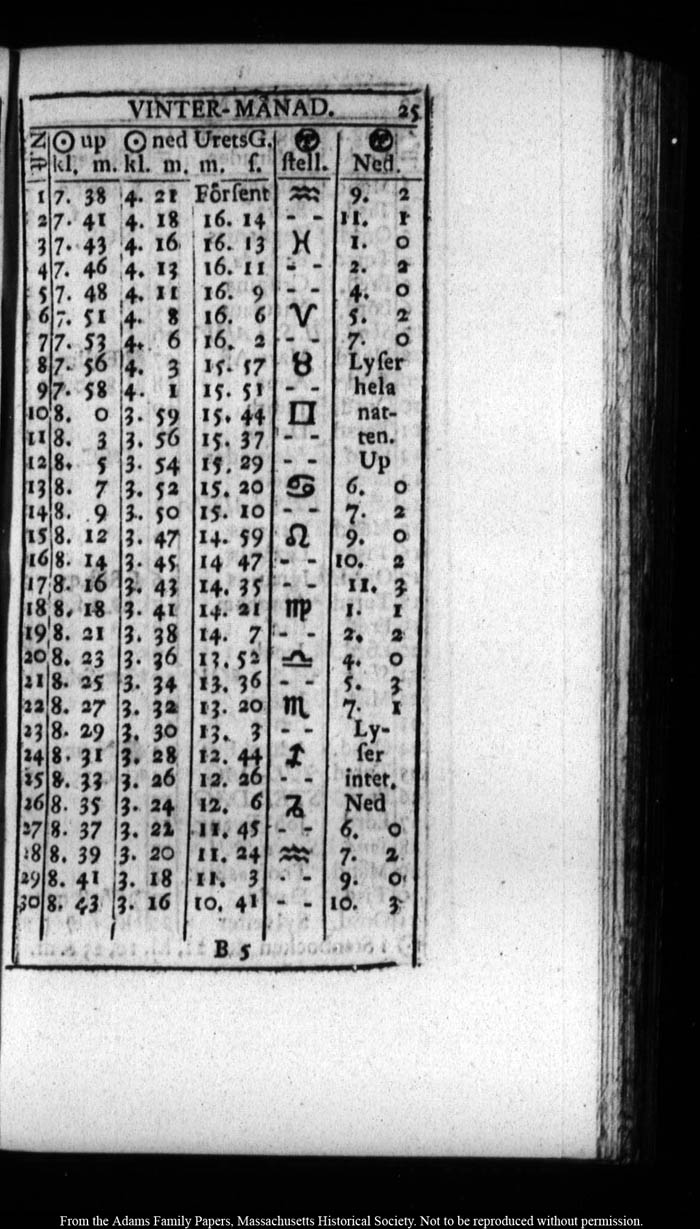 VINTER-MÅNAD. 25
N:o ☉ up ☉ ned Urets G. ☾ ☾
kl. m. kl. m. m. ſ. ſtell. Ned.
1 7. 38 4. 21 Förſent ♒ 9. 2
2 7. 41 4. 18 16. 14 - - 11. 1
3 7. 43 4. 16 16. 13 ♓ 1. 0
4 7. 46 4. 13 16. 11 - - 2. 2
5 7. 48 4. 11 16. 9 - - 4. 0
6 7. 51 4. 8 16. 6 ♈ 5. 2
7 7. 53 4. 6 16. 2 - - 7. 0
8 7. 56 4. 3 15. 57 ♉ Lyſer
9 7. 58 4. 1 15. 51 - - hela
10 8. 0 3. 59 15. 44 ♊ nat-
11 8. 3 3. 56 15. 37 - - ten.
12 8. 5 3. 54 15. 29 - - Up
13 8. 7 3. 52 15. 20 ♋ 6. 0
14 8. 9 3. 50 15. 10 - - 7. 2
15 8. 12 3. 47 14. 59 ♌ 9. 0
16 8. 14 3. 45 14 47 - - 10. 2
17 8. 16 3. 43 14. 35 - - 11. 3
18 8. 18 3. 41 14. 21 ♍ 1. 1
19 8. 21 3. 38 14. 7 - - 2. 2
20 8. 23 3. 36 13. 52 ♎ 4. 0
21 8. 25 3. 34 13. 36 - - 5. 3
22 8. 27 3. 32 13. 20 ♏ 7. 1
23 8. 29 3. 30 13. 3 - - Ly-
24 8. 31 3. 28 12. 44 ♐ ſer
25 8. 33 3. 26 12. 26 - - intet.
26 8. 35 3. 24 12. 6 ♑ Ned
27 8. 37 3. 22 11. 45 - - 6. 0
28 8. 39 3. 20 11. 24 ♒ 7. 2
29 8. 41 3. 18 11. 3 - - 9. 0
30 8. 43 3. 16 10. 41 - - 10. 3
B 5
From the Adams Family Papers, Massachusetts Historical Society. Not to be reproduced without permission.